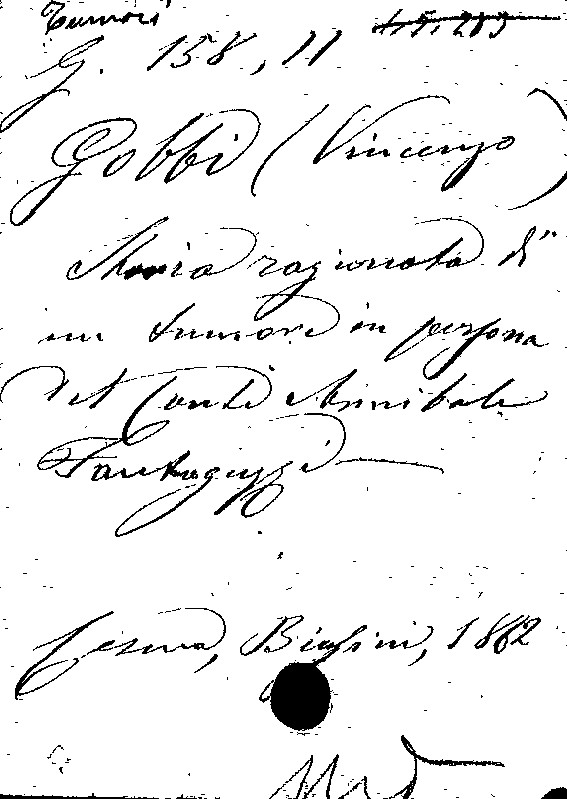 Tumori
45. 213
G. 158, 11
Gobbi (Vincenzo)
Storia ragionata di
un tumore in persona
del Conte Annibale
Fantaguzzi
Cesena, Biasini, 1882